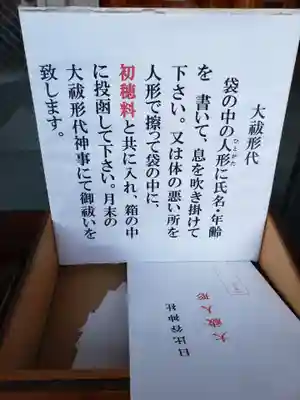 大祓形代
袋の中の人形に氏名・年齢
ひとがた
を 書いて、息を吹き掛けて
下さい。又は体の悪い所を
人形で擦って袋の中に、
初穂料と共に入れ、箱の中
に投函して下さい。月末の
大祓形代神事にて御祓いを
致します。
大祓人形
日比谷神社